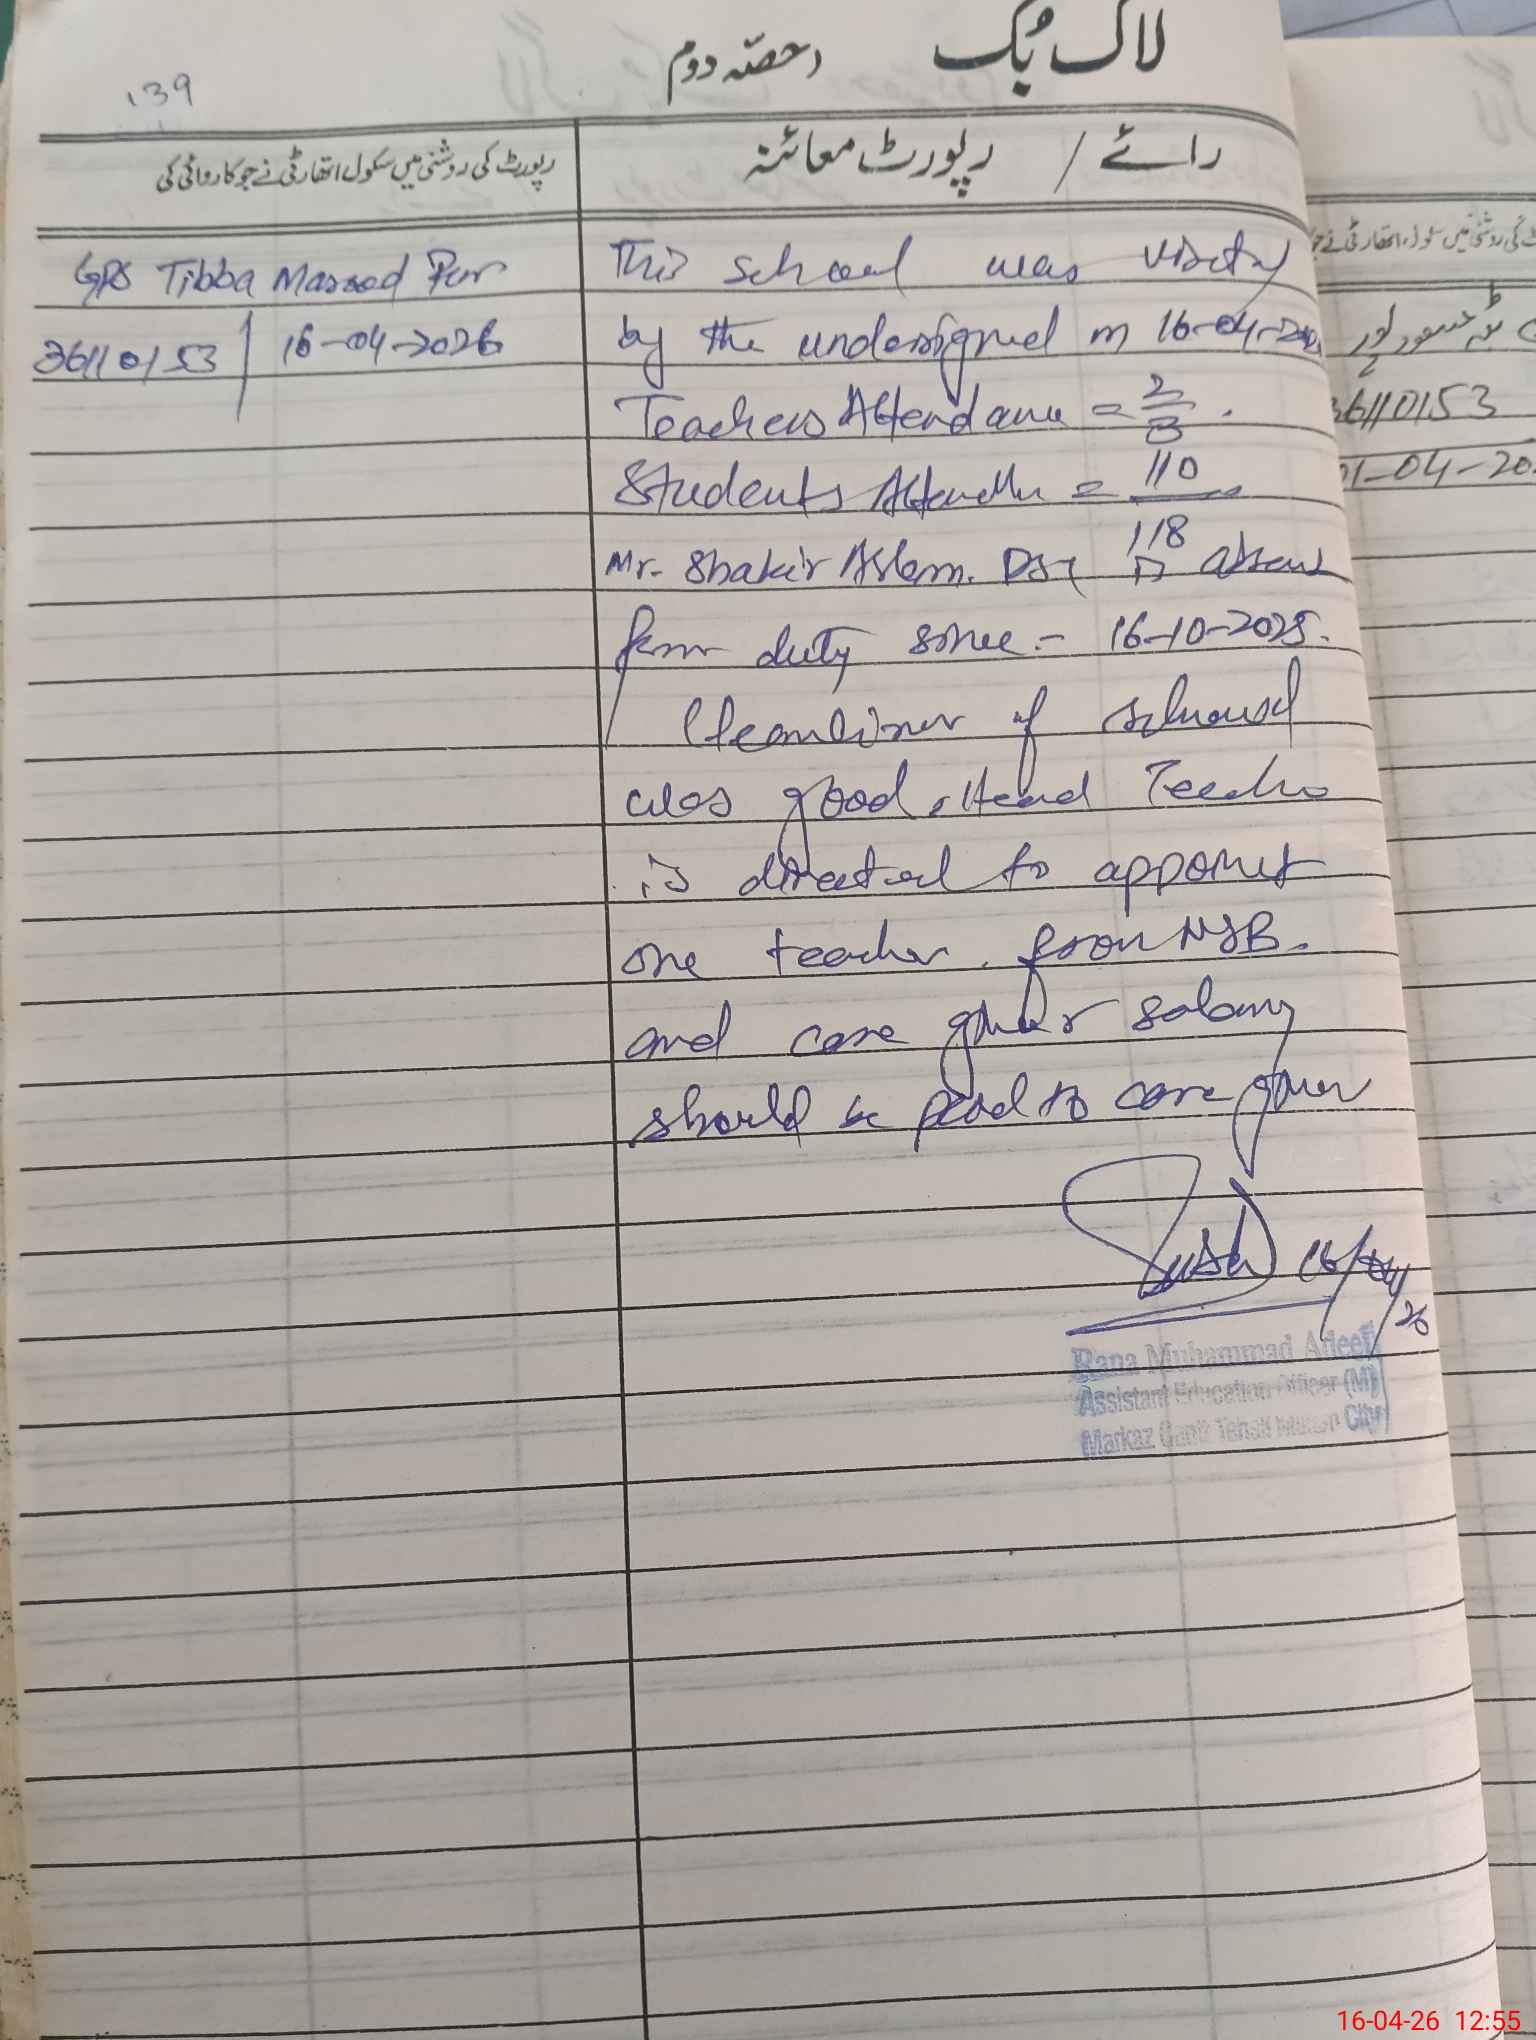 لاگ بک (حصّہ دوم
139
رائے / رپورٹ معائنہ
رپورٹ کی روشنی میں سکول اتھارٹی نے جو کاروائی کی
GPS Tibba Masood Pur
36110153 / 16-04-2026
This school was visited
by the undersigned on 16-04-202
Teachers Attendance = 2/3.
Students Attendance = 110/118
Mr. Shakir Aslam. DST is absent
from duty since - 16-10-2025.
Cleanliness of school
was good. Head Teacher
is directed to appoint
one teacher from NSB.
and care giver salary
should be paid to care giver
16/04/26
Rana Muhammad Adeel
Assistant Education Officer (M)
Markaz Tehsil Multan City
36110153
21-04-20
16-04-26 12:55